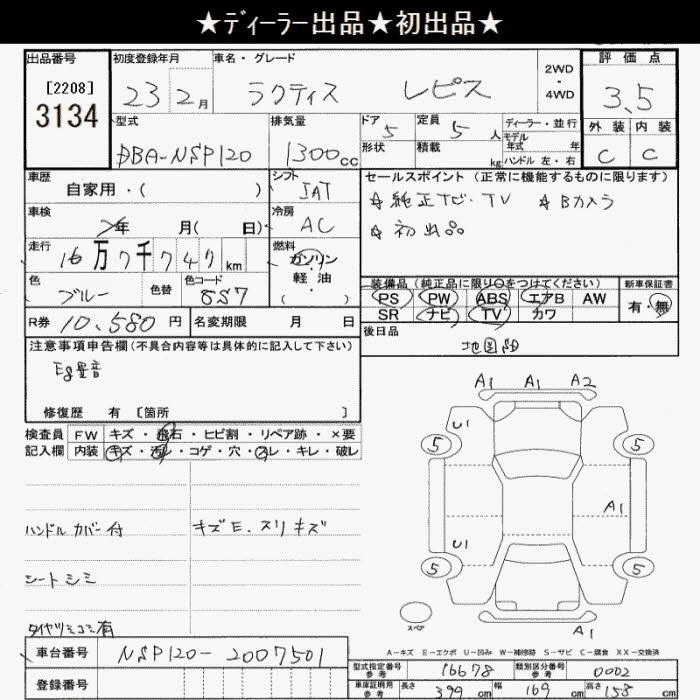 ★ディーラー出品★初出品★
出品番号 初度登録年月 車名・グレード 2WD・4WD 評価点
[2208]
3134
23 2月 ラクティス レピス 3.5
型式 排気量 ドア 定員 ディーラー・並行 外装 内装
DBA-NSP120 1300cc 5 5人 モデル年式 年 C C
形状 積載 kg ハンドル 左・右
車歴 シフト セールスポイント (正常に機能するものに限ります)
自家用・( ) IAT ☆純正ナビ・TV ☆Bカメラ
車検 冷房
年 月( 日) AC ☆初出品
走行 燃料
16万7千747km ガソリン・軽油・( )
色 色替 色コード 装備品 (純正品に限り○をつけてください) 新車保証書
ブルー 8S7 PS PW ABS エアB AW 有・無
SR ナビ TV カワ
R券 10,580円 名変期限 月 日 後日品
注意事項申告欄(不具合内容等は具体的に記入して下さい) 地図SD
Eg異音
修復歴 有 [箇所 ]
検査員 FW キズ・飛石・ヒビ割・リペア跡・×要
記入欄 内装 キズ・汚レ・コゲ・穴・スレ・キレ・破レ
A1 A1 A2
U1
5 5
A1
U1
5 5
A1
スペア
ハンドルカバー付 キズE、スリキズ
シートシミ
タイヤツミコミ有
A-キズ E-エクボ U-凹み W-補修跡 S-サビ C-腐食 XX-交換済
車台番号 NSP120-2007501
型式指定番号 参考 16678 類別区分番号 参考 0002
登録番号
車庫証明用 参考 長さ 399cm 幅 169cm 高さ 158cm